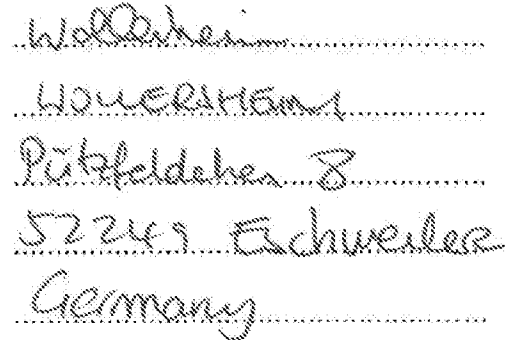 Wollersheim
WOLLERSHEIM
Pützfeldchen 8
52249 Eschweiler
Germany